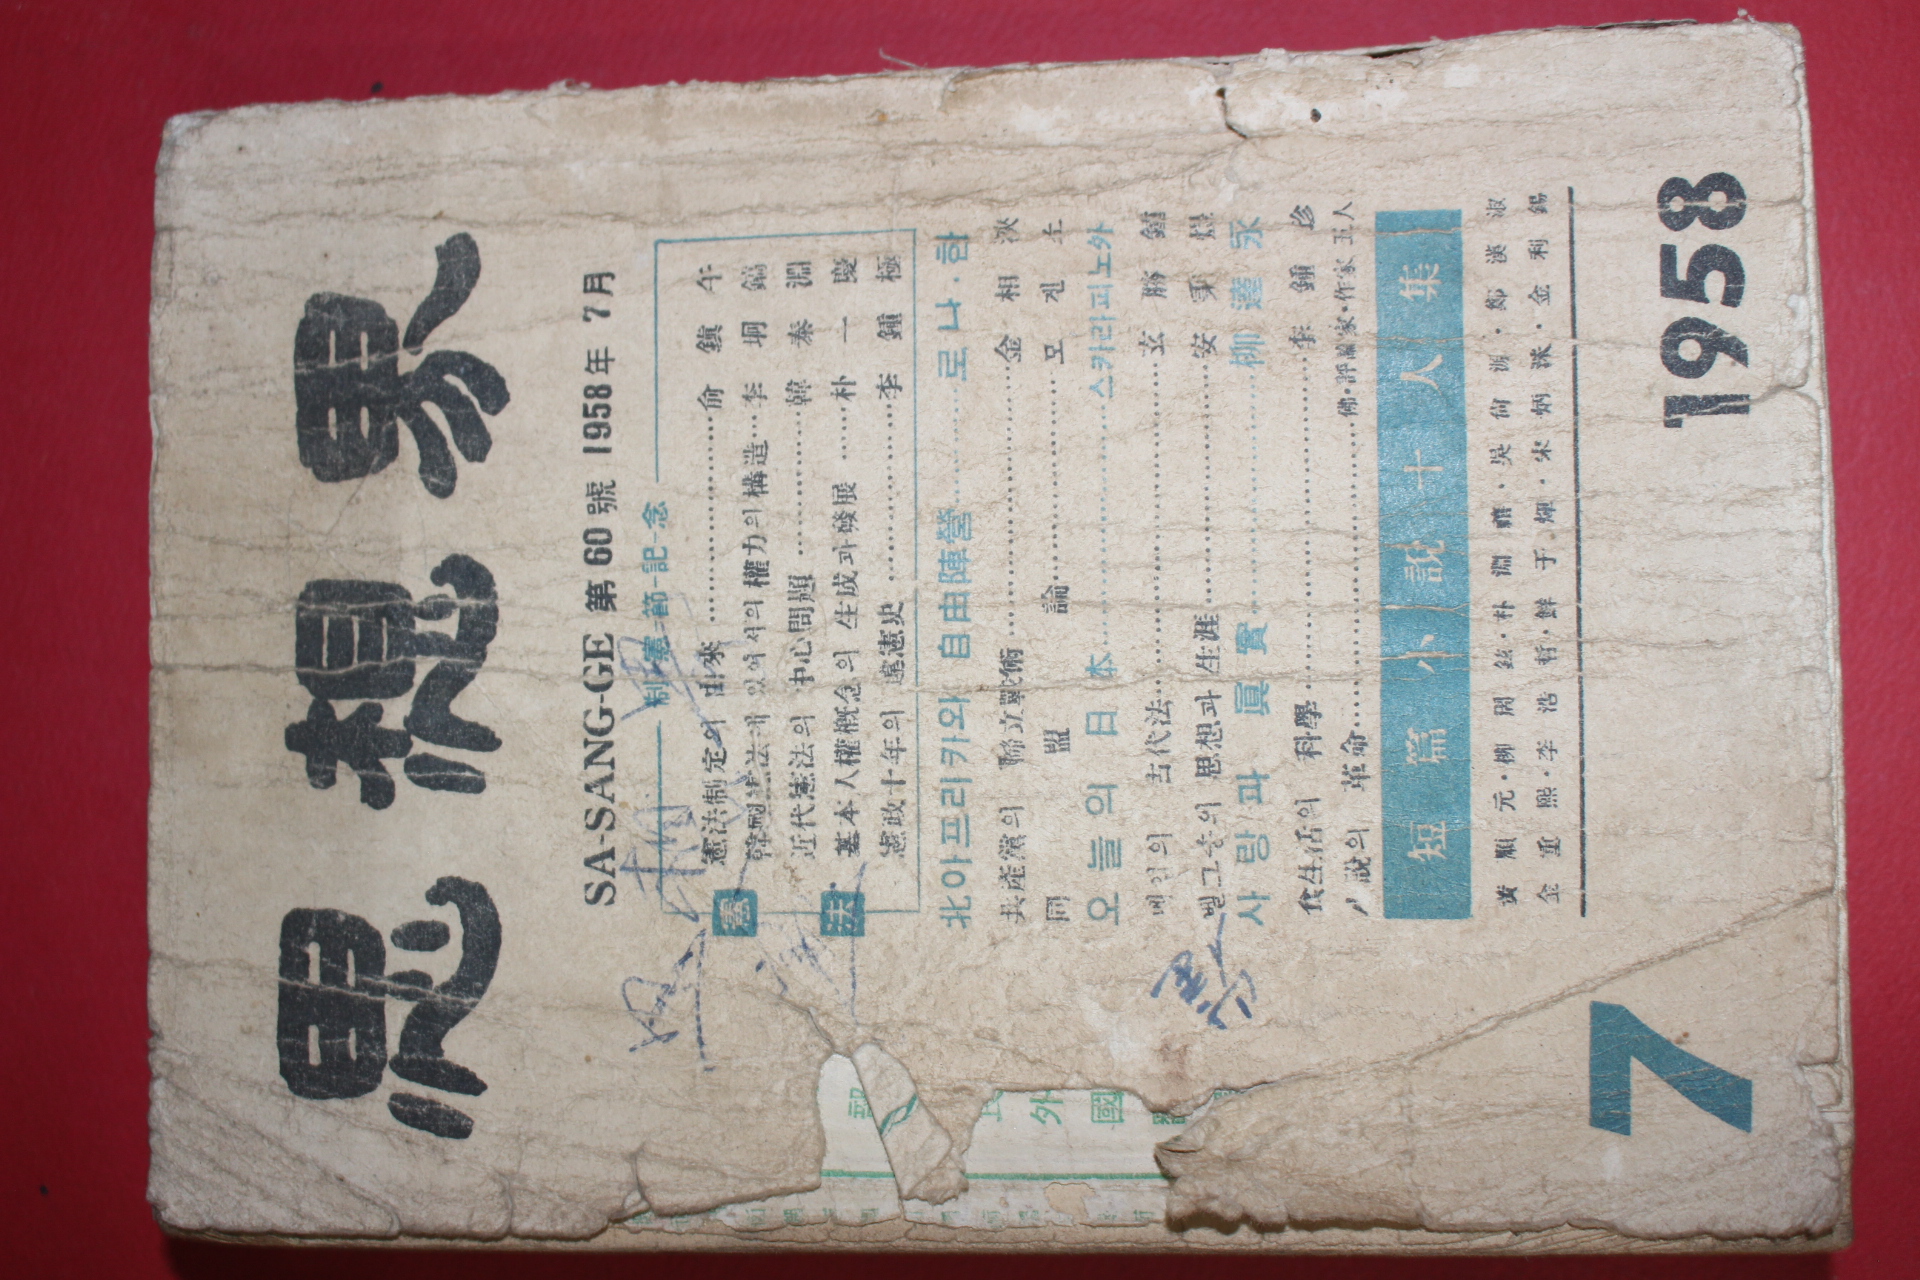 思想界
SA-SANG-GE 第60號 1958年 7月
制憲節記念
憲法
憲法制定의 由來……兪鎭午
韓國憲法에 있어서의 權力의 構造…李坰鎬
近代憲法의 中心問題……韓泰淵
基本人權槪念의 生成과 發展……朴一慶
憲政十年의 違憲史……李鍾極
北아프리카와 自由陣營……로나·한
共產黨의 聯立戰術……金相浹
同盟論……모겐소
오늘의 日本……스카라피노外
메인의 古代法……玄勝鍾
벨그송의 思想과 生涯……安秉煜
사랑과 眞實……柳達永
食生活의 科學……李鍾珍
小說의 革命……佛·評論家·作家五人
短篇小說十人集
黃順元·柳周鉉·朴淵禧·吳尙源·鄭漢淑
金重熙·李浩哲·鮮于煇·宋炳洙·金利錫
7
1958
外
國